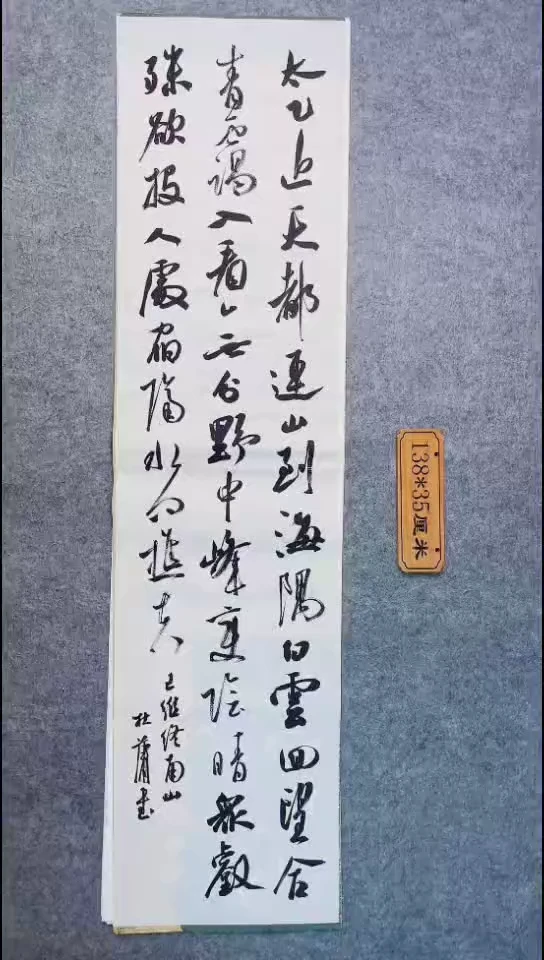 太乙近天都連山到海隅白雲回望合
青靄入看无分野中峰變陰晴衆壑
殊欲投人處宿隔水问樵夫
王維终南山
杜蒲书
138*35厘米